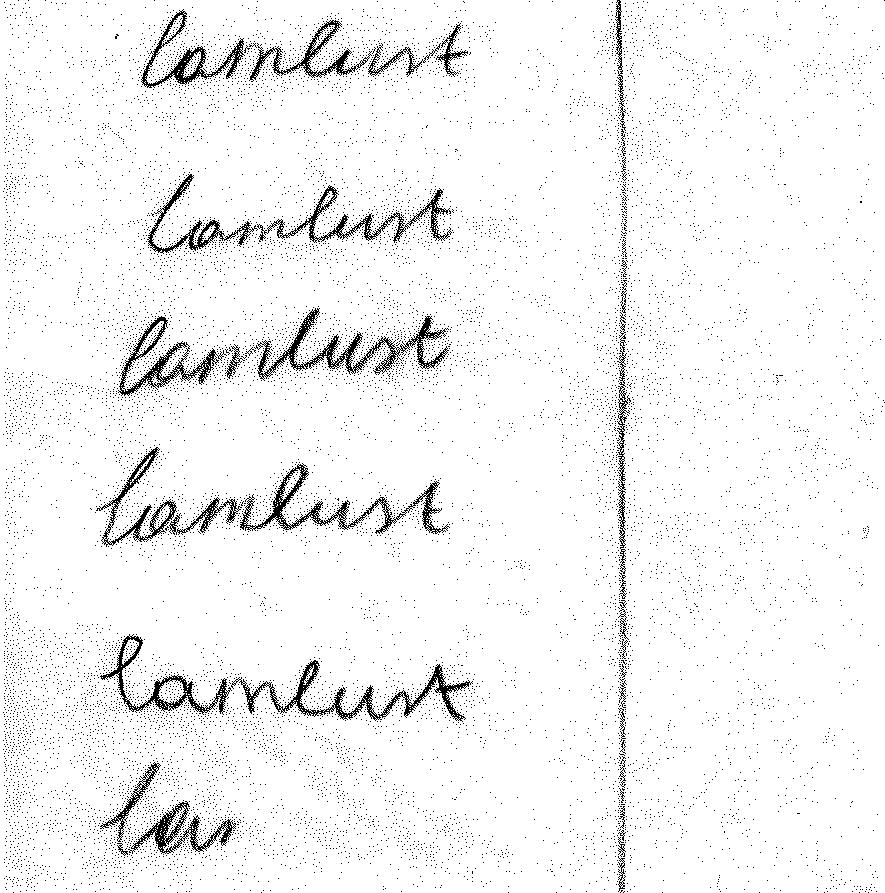 lamlust
lamlust
lamlust
lamlust
lamlust